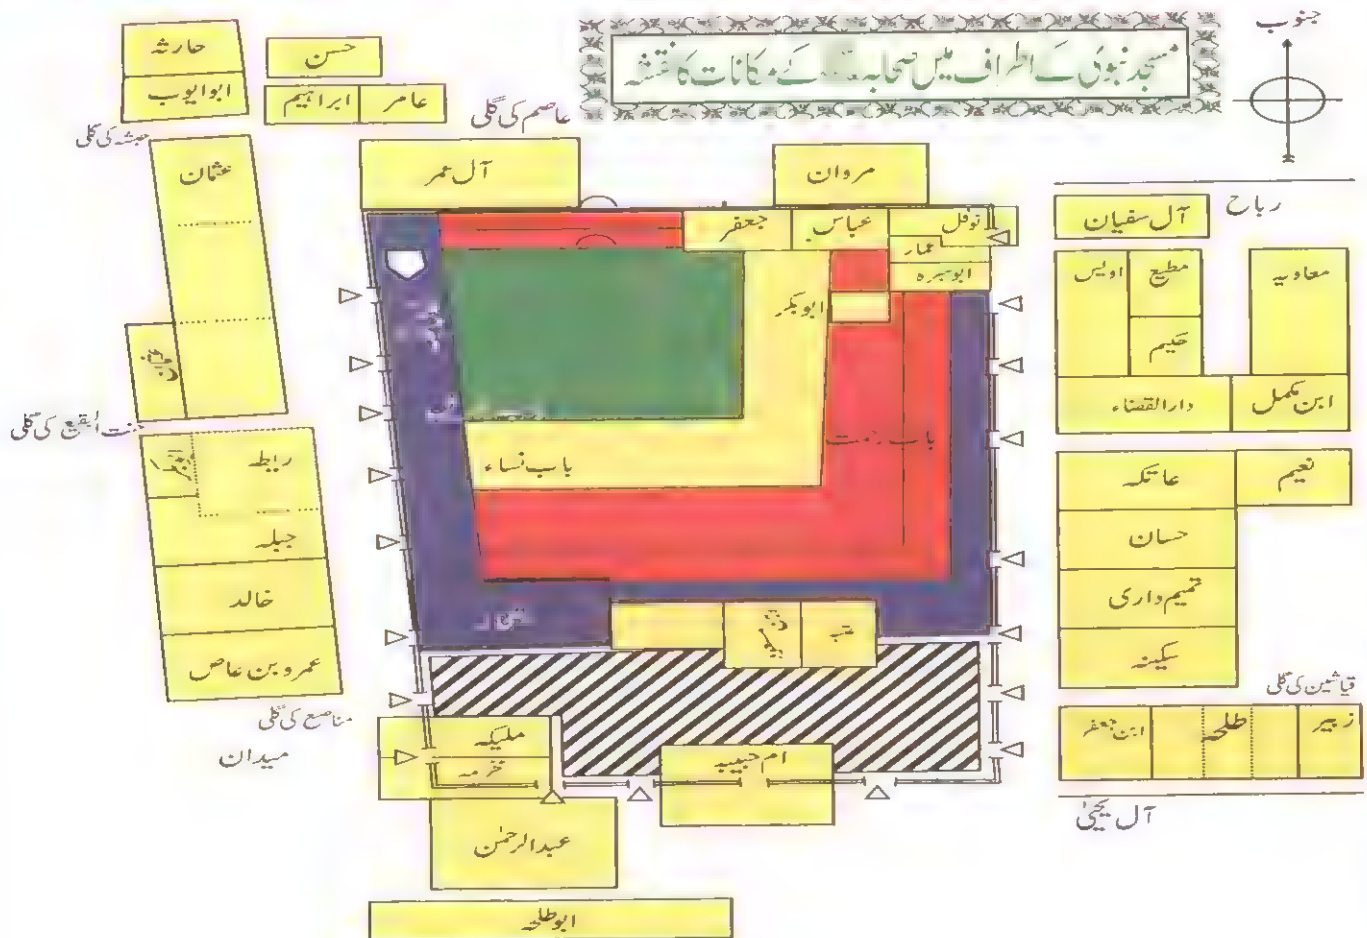 مسجد نبوی کے اطراف میں صحابہ کے مکانات کا نقشہ
جنوب
حارثہ
حسن
ابوایوب
ابراہیم
عامر
عاصم کی گلی
حبشہ کی گلی
عثمان
آل عمر
مروان
رباح
آل سفیان
جعفر
عباس
نوفل
عمار
ابوسبرہ
ابوبکر
اویس
مطیع
معاویہ
دارالقضاء
ابن مکمل
جنت البقیع کی گلی
باب رحمت
باب نساء
ریطہ
جبلہ
خالد
عمرو بن عاص
عاتکہ
نعیم
حسان
تمیم داری
سکینہ
قیاشین کی گلی
مناصع کی گلی
میدان
ملیکہ
مخرمہ
ام حبیبہ
عبدالرحمٰن
ابوطلحہ
ابن جعفر
طلحہ
زبیر
آل یحییٰ